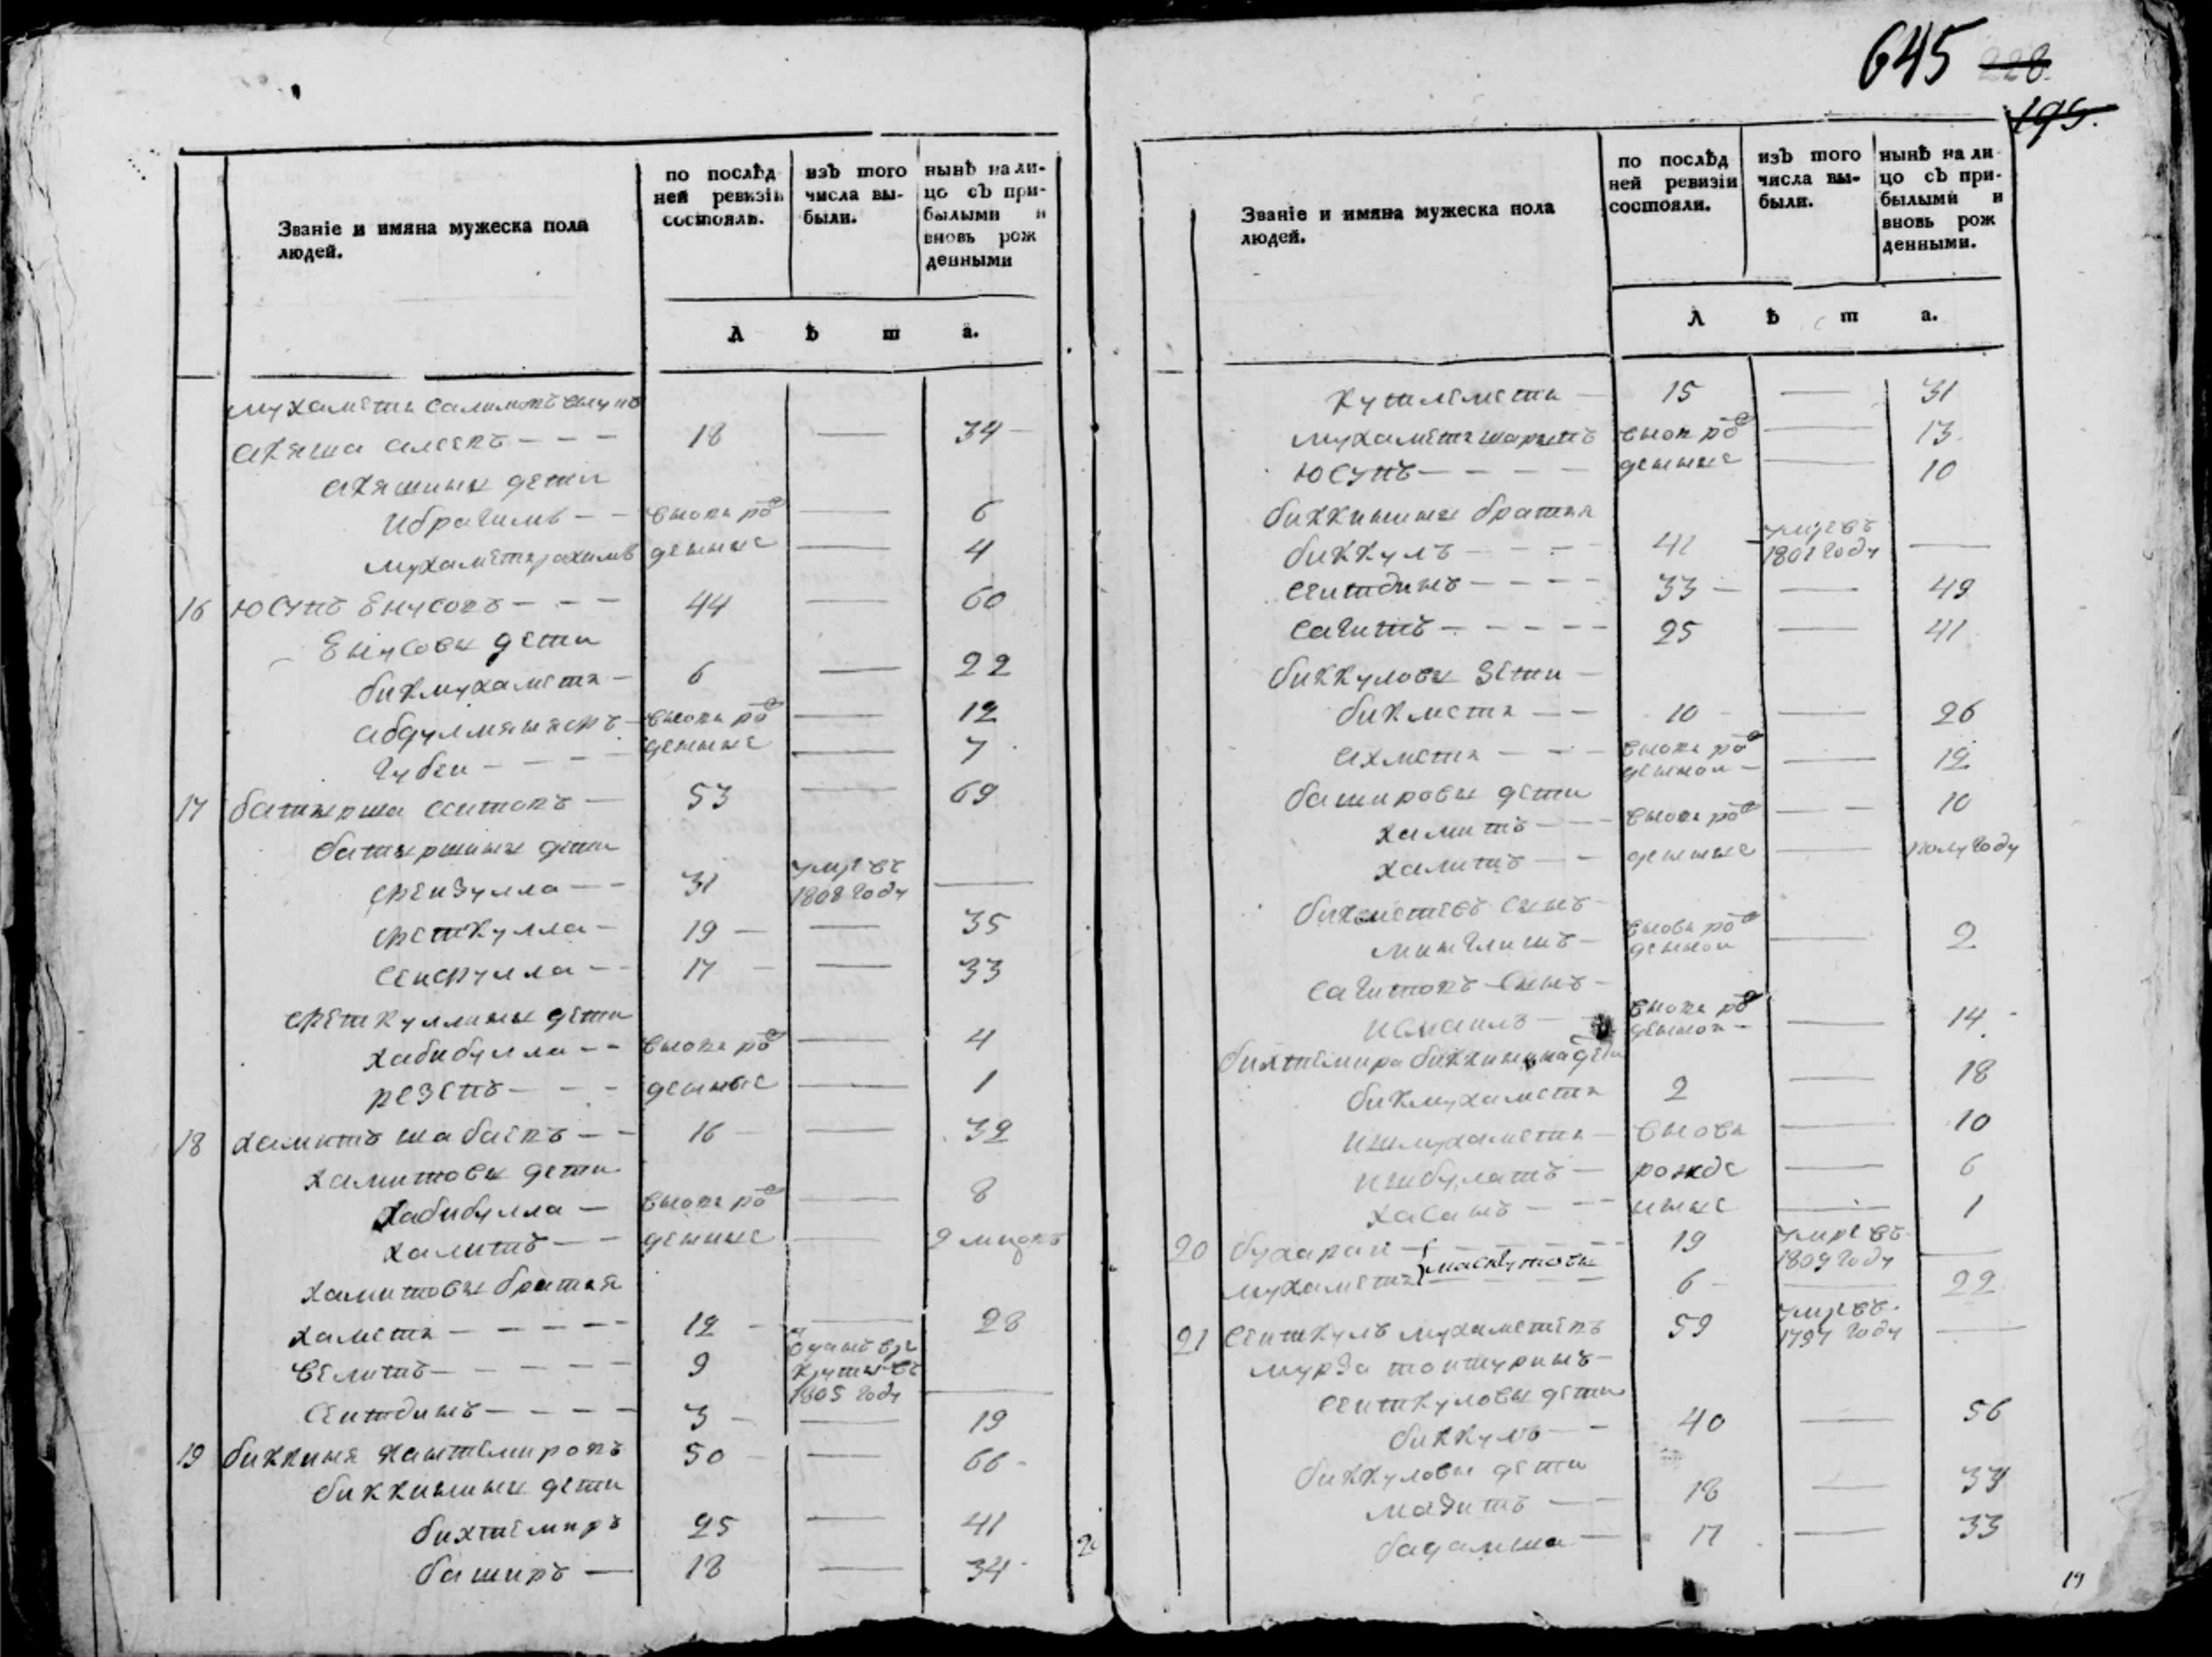 Званіе и имяна мужеска пола
людей.
по послѣд
ней ревизіи
состояли.
изъ того
числа вы-
были.
нынѣ на ли-
цо съ при-
былыми и
вновь рож
денными
Л ѣ т а.
мухаметъ салимовъ внукъ
Акяша алеевъ — — — 18 — 34
Акяшины дети
Ибрагимъ — — вновь ро — 6
мухаметрахимъ денные — 4
16 Юсупъ Енусовъ — — — 44 — 60
Енусовы дети
бикмухаметь — 6 — 22
абдулмянафъ — вновь ро — 12
губеи — — — — денные — 7
17 батырша сеитовъ — 53 — 69
батыршины дети
фейзулла — — 31 умре въ 1808 году —
феткулла — 19 — 35
сейфулла — — 17 — 33
феткуллины дети
хабибулла — — вновь ро — 4
резепъ — — — денные — 1
18 хамитъ шабаевъ — — 16 — 32
хамитовы дети
хабибулла — вновь ро — 8
халитъ — — денные — 9 мицовъ
хамитовы братья
хаметь — — — — — 12 — 28
велитъ — — — — — 9 отданъ въ рекруты въ 1805 году —
сеитдинъ — — — — 3 — 19
19 биккиня яантемировъ 50 — 66
биккинины дети
бихтемиръ 25 — 41
баширъ — 18 — 34
645 228
195.
Званіе и имяна мужеска пола
людей.
по послѣд
ней ревизіи
состояли.
изъ того
числа вы-
были.
нынѣ на ли
цо съ при-
былыми и
вновь рож
денными.
Л ѣ т а.
кутлеметь — 15 — 31
мухаметшарыпъ вновь ро — 13
Юсупъ — — — — денные — 10
биккинины братья
биккулъ — — — — 41 умре въ 1801 году —
сеитдинъ — — — — 33 — 49
сагитъ — — — — — 25 — 41
биккуловы дети —
бикметь — — 10 — 26
ахметь — — — вновь ро денной — 12
башировы дети
хамитъ — — — вновь ро — 10
халитъ — — денные — полугоду
бикметевъ сынъ —
минглишъ — вновь ро денной — 2
сагитовъ сынъ —
исмаилъ — вновь ро денной — 14
бихтемира биккинина дети
бикмухаметь 2 — 18
ишмухаметь — вновь — 10
ишбулатъ — рожде — 6
хасанъ — — нные — 1
20 бухарай — 19 умре въ 1809 году —
мухаметь } маскутовы 6 — 22
21 сеиткулъ мухаметевъ 59 умре въ 1797 году —
мурза тоитуринъ —
сеиткуловы дети
биккулъ — — 40 — 56
биккуловы дети
мазитъ — — 18 — 34
бадамша — 17 — 33
19